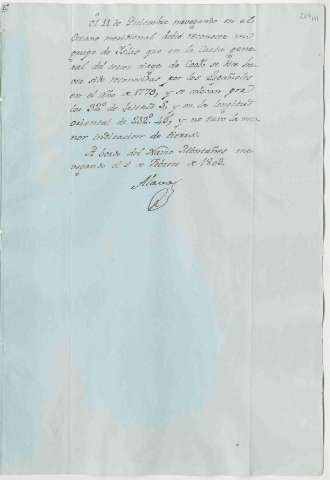 El 11 de Diciembre navegando en el
Oceano meridional debió reconocer un
grupo de Islas que en la Carta general
del tercer viage de Cook se dice
haver sido reconocidas por los Españoles
en el año de 1773, y se situan por
los 32° de Latitud S, y en la longitud
oriental de 232° 46, y no tuvo la menor
indicacion de tierra.
A bordo del Navio Montañes navegando
el 2 de Febrero de 1803.
Alava